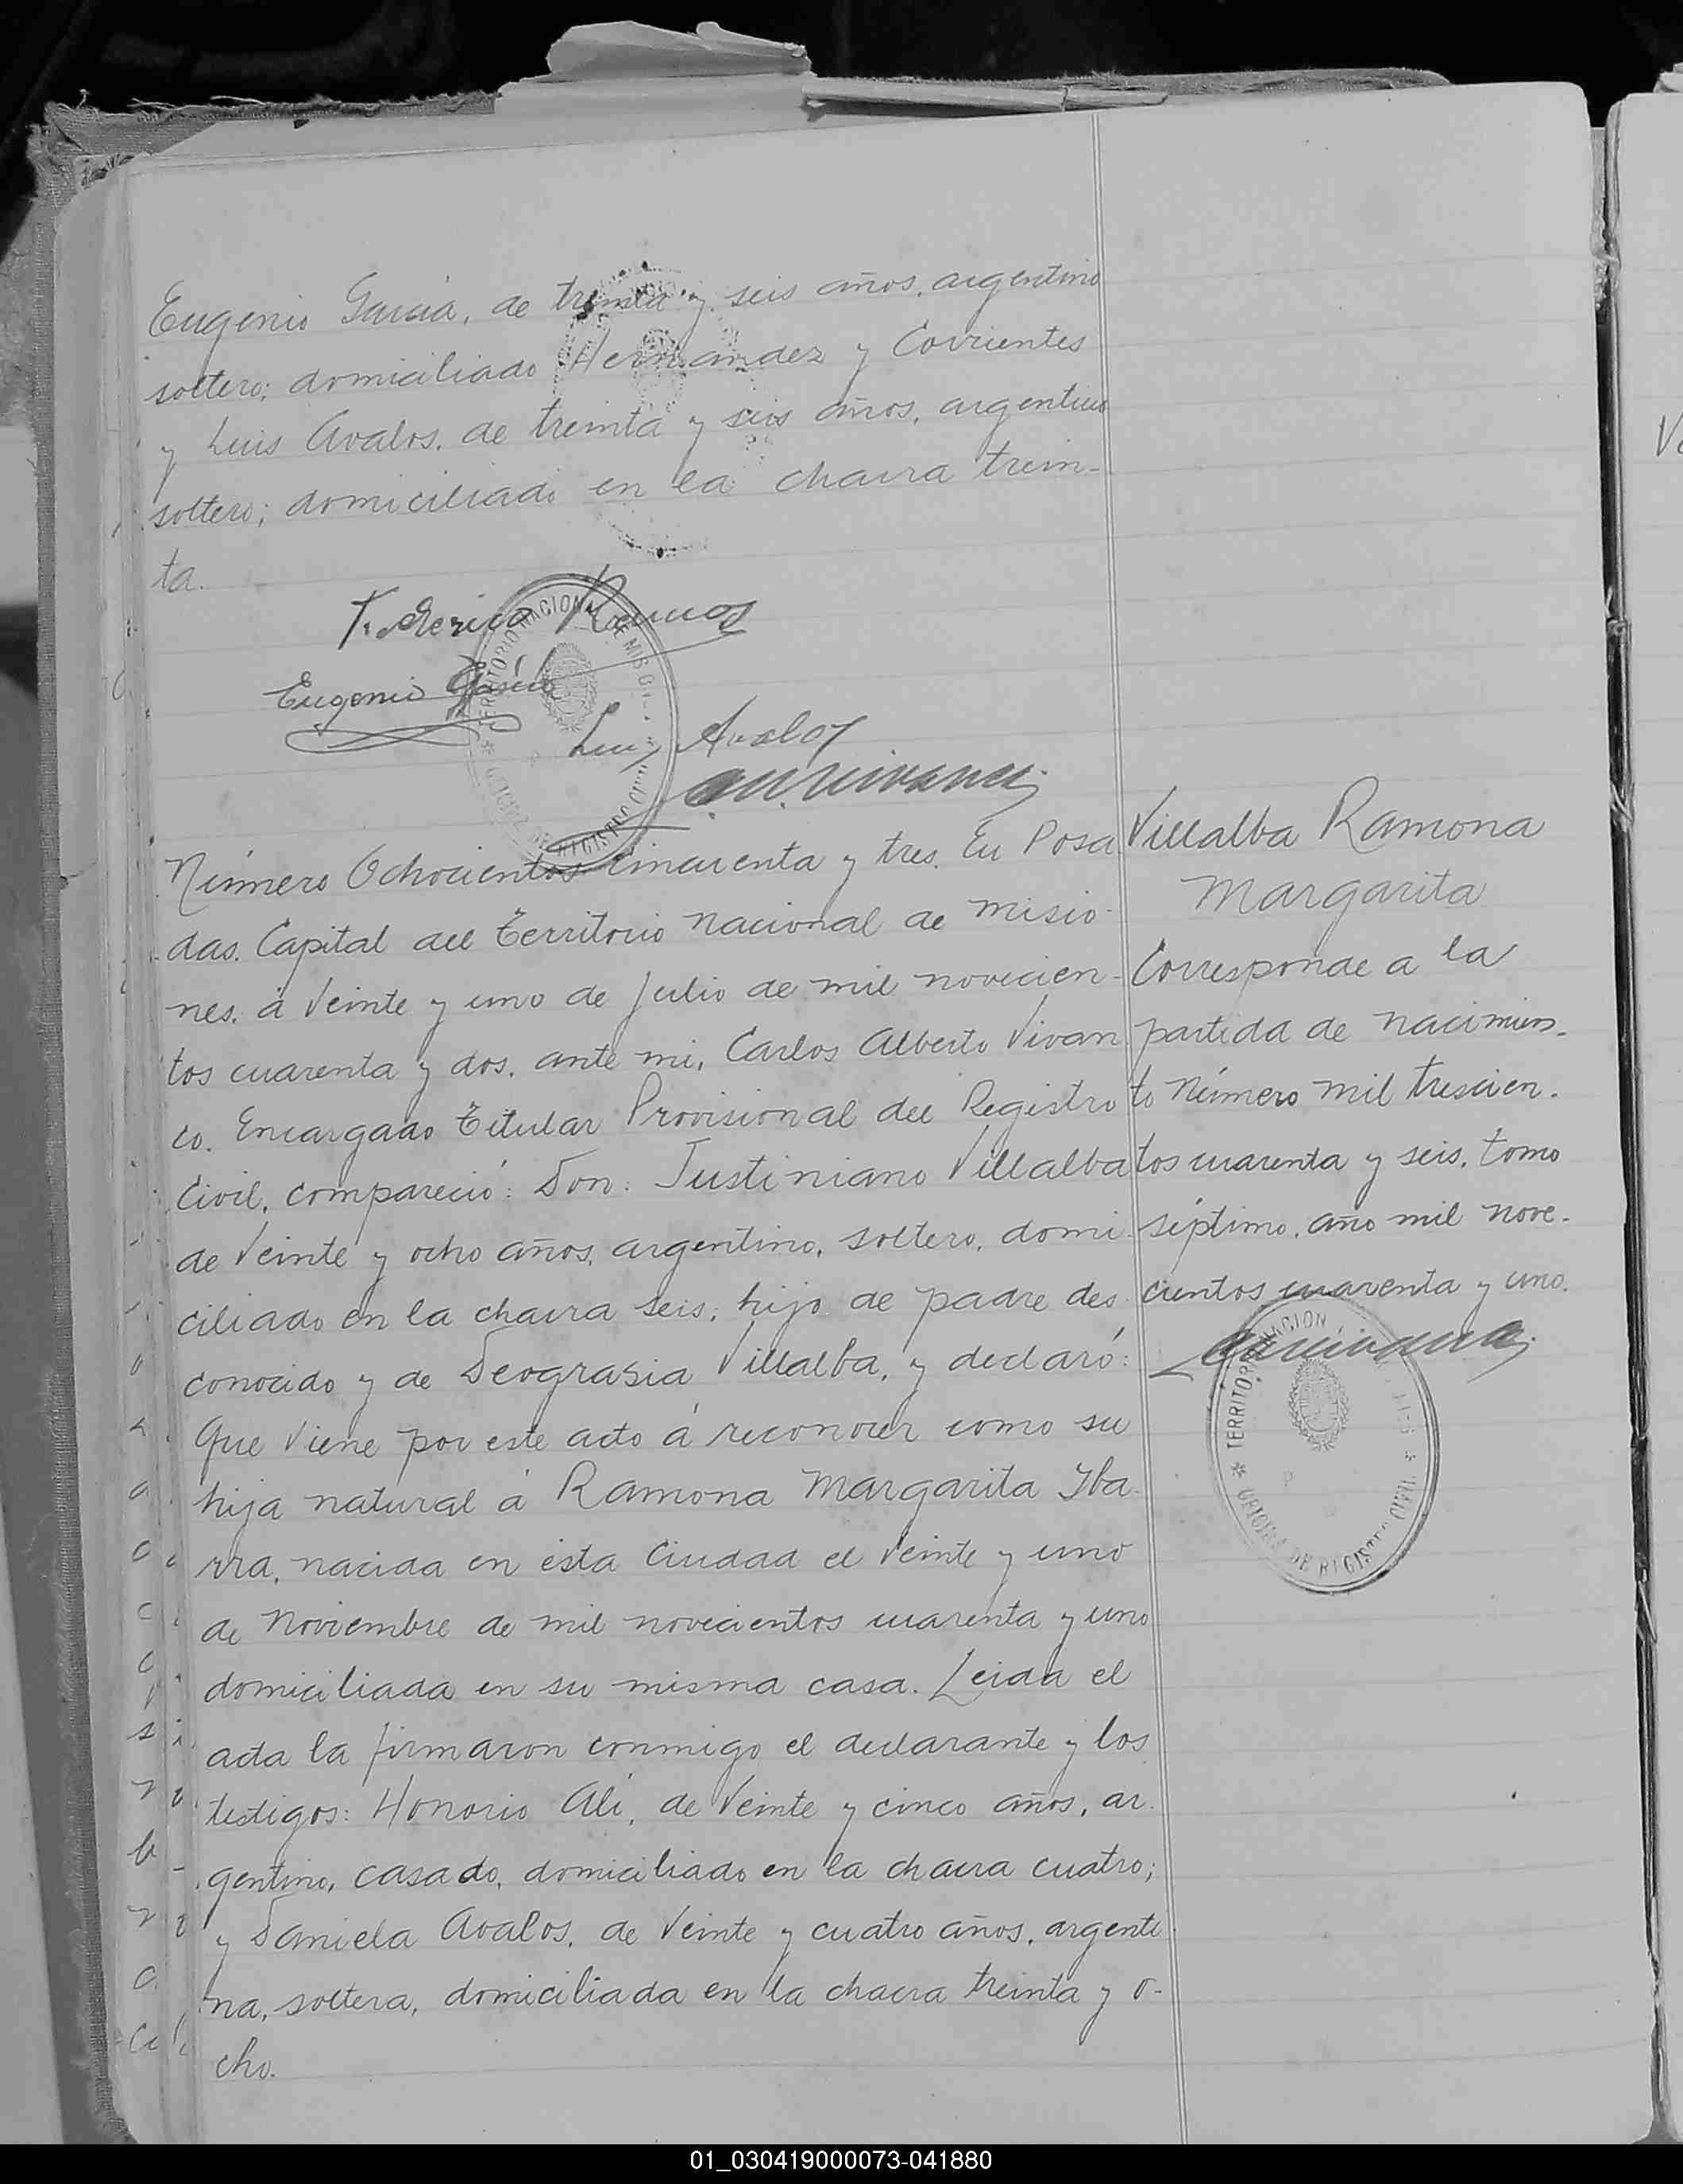 Eugenio Garcia, de treinta y seis años, argentino
soltero; domiciliado Hernandez y Corrientes
y Luis Avalos, de treinta y seis años, argentino
soltero; domiciliado en la chacra trein-
ta.
Federico Ramos
Eugenio García
Luis Avalos
TERRITORIO NACIONAL DE MISIONES
Número Ochocientos cincuenta y tres. En Posa
das. Capital del Territorio Nacional de Misio-
nes. á veinte y uno de Julio de mil novecien-
tos cuarenta y dos. ante mi, Carlos Alberto Vivan
co. Encargado Titular Provisional del Registro
Civil, compareció: Don: Justiniano Villalba
de veinte y ocho años, argentino, soltero, domi-
ciliado en la chacra seis; hijo de padre des-
conocido y de Deograsia Villalba, y declaró:
Que viene por este acto á reconocer como su
hija natural á Ramona Margarita Yba-
rra, nacida en ésta Ciudad el veinte y uno
de Noviembre de mil novecientos cuarenta y uno
domiciliada en su misma casa. Leida el
acta la firmaron conmigo el declarante y los
testigos: Honorio Ali, de veinte y cinco años, ar-
gentino, casado, domiciliado en la chacra cuatro;
y Daniela Avalos, de veinte y cuatro años, argenti-
na, soltera, domiciliada en la chacra treinta y o-
cho.
Villalba Ramona
Margarita
Corresponde a la
partida de nacimien-
to Número mil trescien-
tos cuarenta y seis, tomo
séptimo, año mil nove-
cientos cuarenta y uno.
TERRITORIO NACION
OFICINA DE REGISTRO CIVIL
01_030419000073-041880